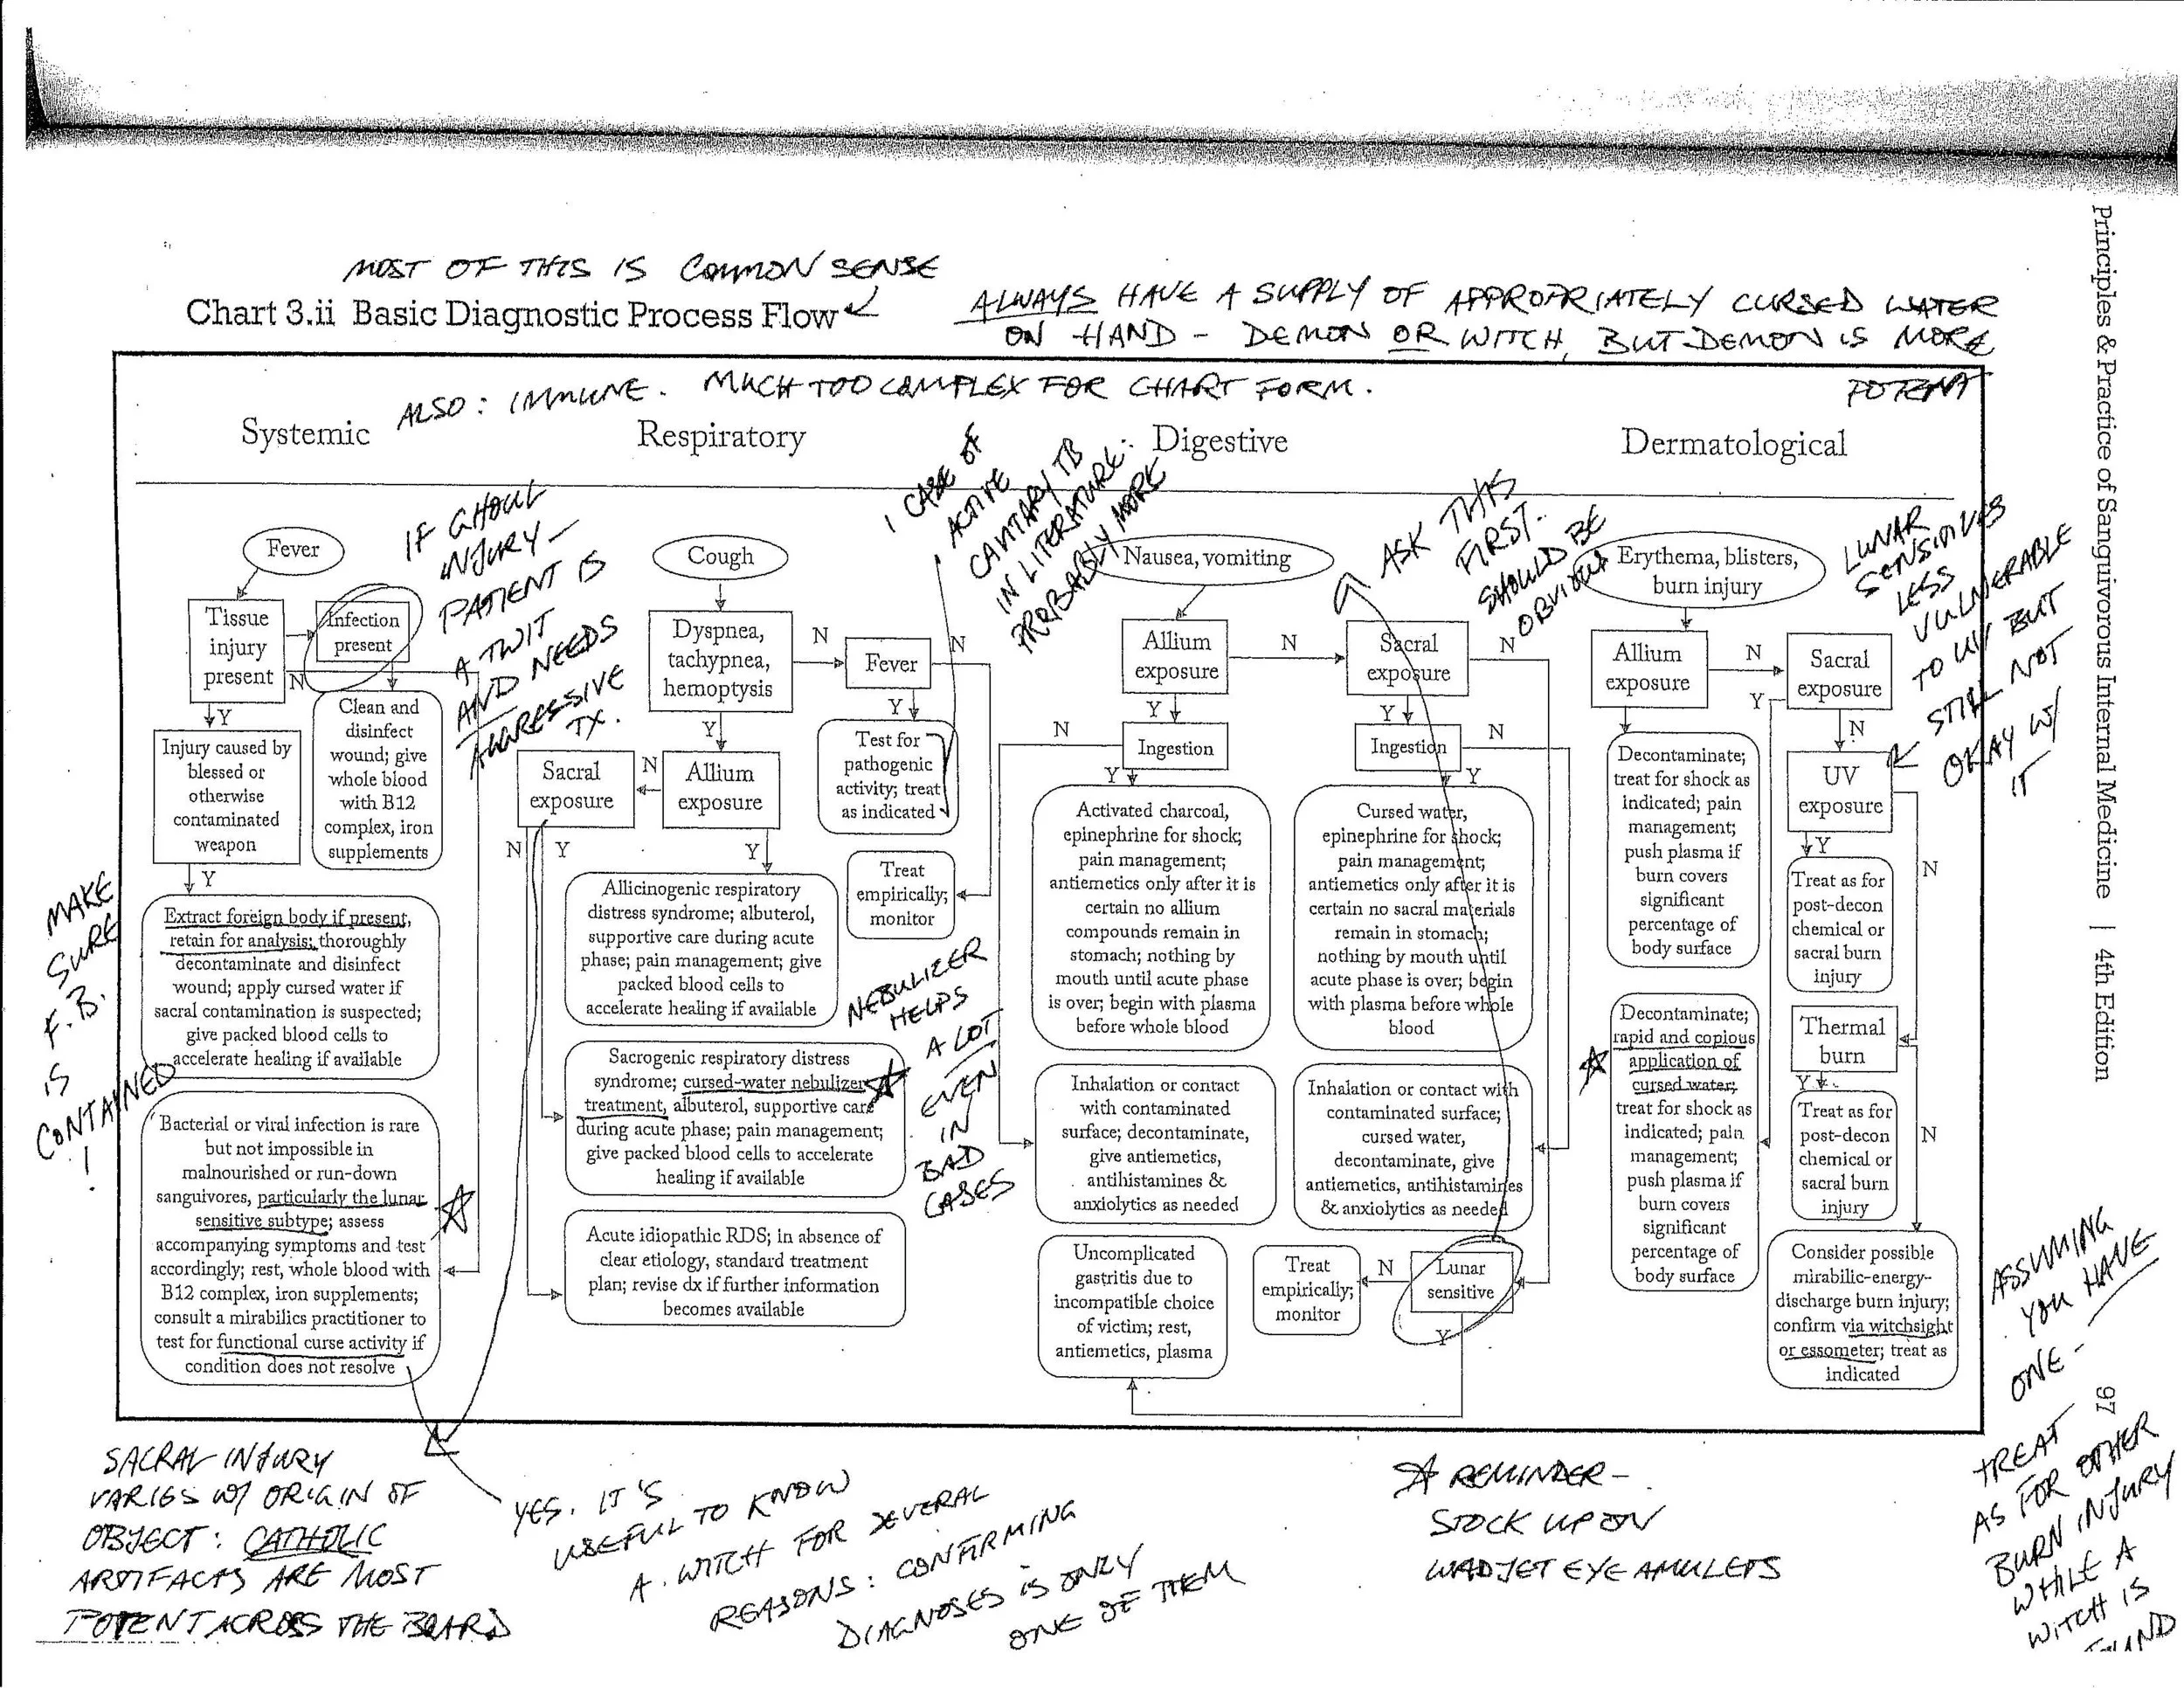 MOST OF THIS IS COMMON SENSE
Chart 3.ii Basic Diagnostic Process Flow
ALWAYS HAVE A SUPPLY OF APPROPRIATELY CURSED WATER
ON HAND - DEMON OR WITCH, BUT DEMON IS MORE
POTENT
ALSO: IMMUNE. MUCH TOO COMPLEX FOR CHART FORM.
Systemic
Respiratory
Digestive
Dermatological
Fever
Tissue
injury
present
Infection
present
N
Y
Clean and
disinfect
wound; give
whole blood
with B12
complex, iron
supplements
Injury caused by
blessed or
otherwise
contaminated
weapon
Y
Extract foreign body if present,
retain for analysis; thoroughly
decontaminate and disinfect
wound; apply cursed water if
sacral contamination is suspected;
give packed blood cells to
accelerate healing if available
Bacterial or viral infection is rare
but not impossible in
malnourished or run-down
sanguivores, particularly the lunar
sensitive subtype; assess
accompanying symptoms and test
accordingly; rest, whole blood with
B12 complex, iron supplements;
consult a mirabilics practitioner to
test for functional curse activity if
condition does not resolve
IF GHOUL
INJURY -
PATIENT IS
A TWIT
AND NEEDS
AGGRESSIVE
TX.
MAKE
SURE
F.B.
IS
CONTAINED
!
Cough
Dyspnea,
tachypnea,
hemoptysis
N
Fever
N
Y
Y
Test for
pathogenic
activity; treat
as indicated
Sacral
exposure
N
Allium
exposure
N
Y
Y
Treat
empirically;
monitor
Allicinogenic respiratory
distress syndrome; albuterol,
supportive care during acute
phase; pain management; give
packed blood cells to
accelerate healing if available
Sacrogenic respiratory distress
syndrome; cursed-water nebulizer
treatment, albuterol, supportive care
during acute phase; pain management;
give packed blood cells to accelerate
healing if available
Acute idiopathic RDS; in absence of
clear etiology, standard treatment
plan; revise dx if further information
becomes available
1 CASE OF
ACTIVE
CAVITARY TB
IN LITERATURE:
PROBABLY MORE
NEBULIZER
HELPS
A LOT
EVEN
IN
BAD
CASES
Nausea, vomiting
Allium
exposure
N
Sacral
exposure
N
Y
Y
N
Ingestion
Ingestion
N
Y
Y
Activated charcoal,
epinephrine for shock;
pain management;
antiemetics only after it is
certain no allium
compounds remain in
stomach; nothing by
mouth until acute phase
is over; begin with plasma
before whole blood
Cursed water,
epinephrine for shock;
pain management;
antiemetics only after it is
certain no sacral materials
remain in stomach;
nothing by mouth until
acute phase is over; begin
with plasma before whole
blood
Inhalation or contact
with contaminated
surface; decontaminate,
give antiemetics,
antihistamines &
anxiolytics as needed
Inhalation or contact with
contaminated surface;
cursed water,
decontaminate, give
antiemetics, antihistamines
& anxiolytics as needed
Uncomplicated
gastritis due to
incompatible choice
of victim; rest,
antiemetics, plasma
Treat
empirically;
monitor
N
Lunar
sensitive
Y
ASK THIS
FIRST.
SHOULD BE
OBVIOUS
Erythema, blisters,
burn injury
Allium
exposure
N
Sacral
exposure
Y
N
Decontaminate;
treat for shock as
indicated; pain
management;
push plasma if
burn covers
significant
percentage of
body surface
UV
exposure
Y
N
Treat as for
post-decon
chemical or
sacral burn
injury
Decontaminate;
rapid and copious
application of
cursed water;
treat for shock as
indicated; pain
management;
push plasma if
burn covers
significant
percentage of
body surface
Thermal
burn
Y
N
Treat as for
post-decon
chemical or
sacral burn
injury
Consider possible
mirabilic-energy-
discharge burn injury;
confirm via witchsight
or essometer; treat as
indicated
LUNAR
SENSITIVES
LESS
VULNERABLE
TO UV BUT
STILL NOT
OKAY W/
IT
Principles & Practice of Sanguivorous Internal Medicine | 4th Edition
97
ASSUMING
YOU HAVE
ONE -
TREAT
AS FOR OTHER
BURN INJURY
WHILE A
WITCH IS
FOUND
SACRAL INJURY
VARIES W/ ORIGIN OF
OBJECT: CATHOLIC
ARTIFACTS ARE MOST
POTENT ACROSS THE BOARD
YES. IT'S
USEFUL TO KNOW
A WITCH FOR SEVERAL
REASONS: CONFIRMING
DIAGNOSES IS ONLY
ONE OF THEM
REMINDER -
STOCK UP ON
WADJET EYE AMULETS